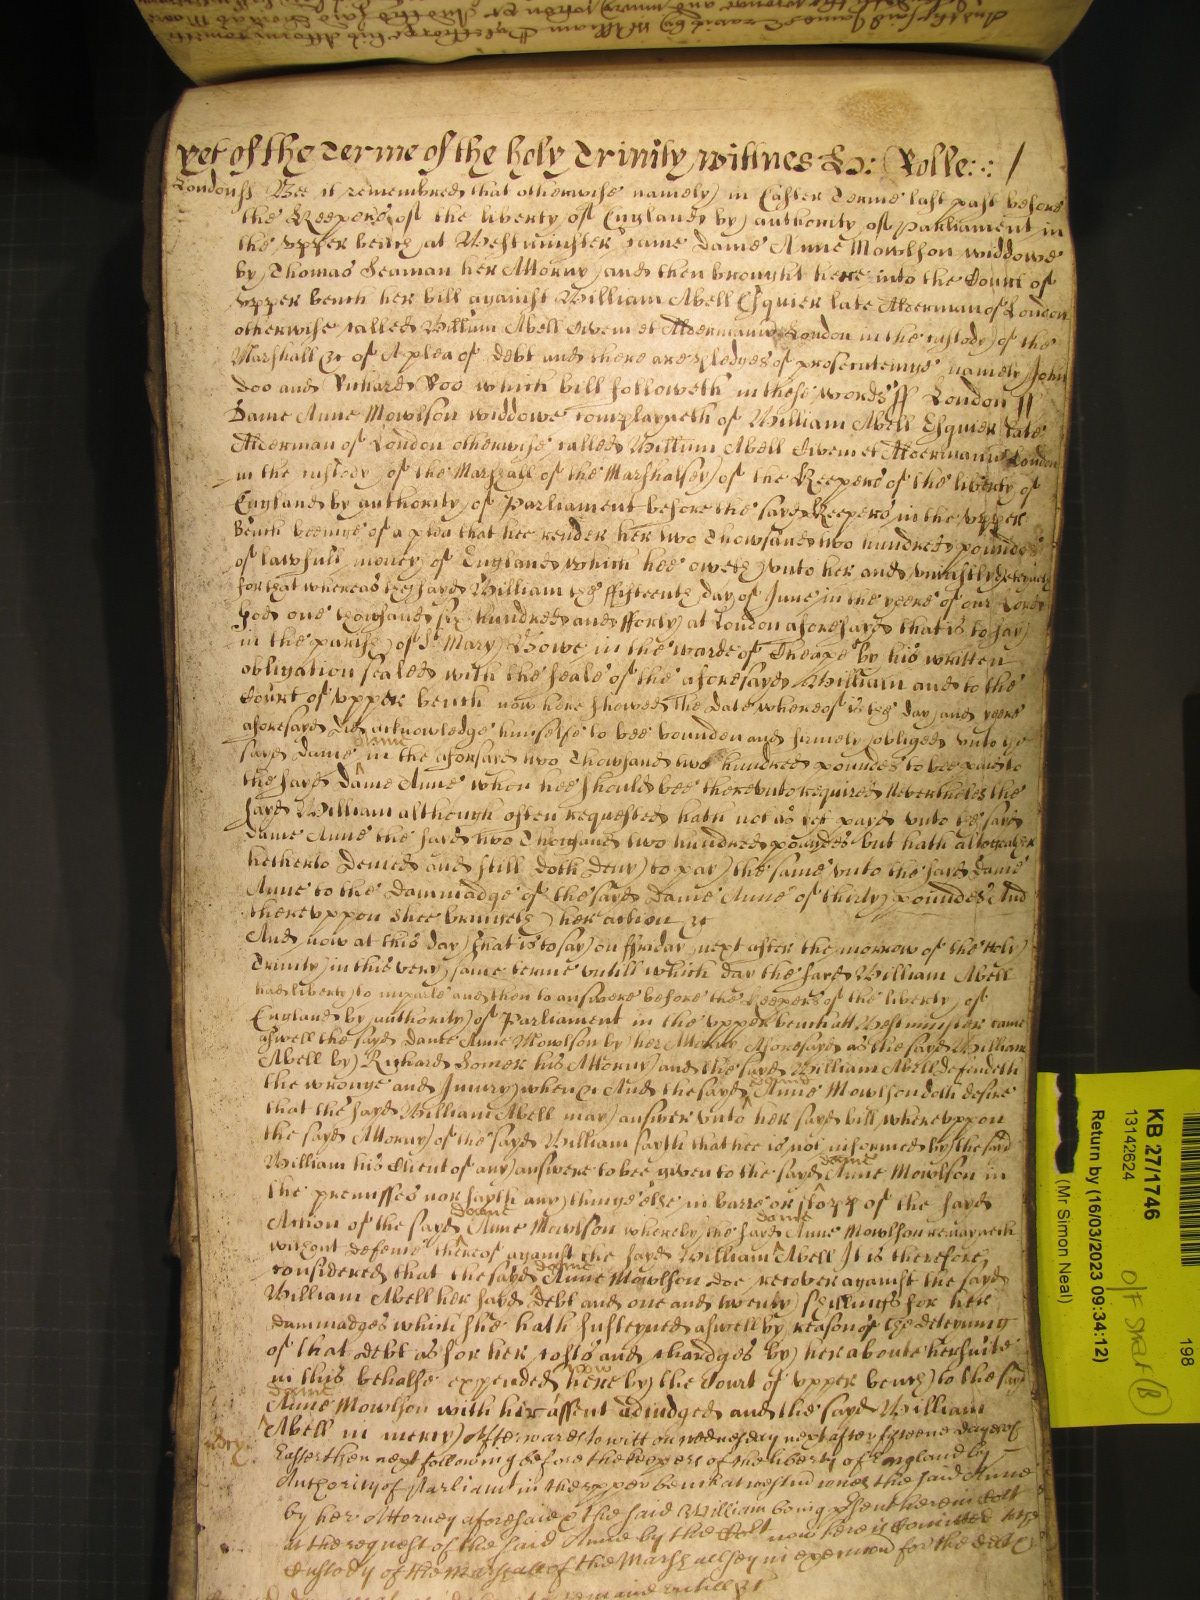 yet of the Terme of the holy Trinity wittnes &c: Rolle: : /
London ss Bee it remembred that otherwise namely in Easter Terme last past before
the Keepers of the liberty of England by authority of Parliament in
the upper bench at Westminster came Dame Anne Mowlson widdowe
by Thomas Seaman her Attorny and then brought here into the Court of
upper bench her bill against William Abell Esquier late Alderman of London
otherwise called Willium Abell Civem et Aldermanum London in the custody of the
Marshall &c of A plea of debt and there are pledges of prosecuteinge namely John
Doo and Richard Roo which bill followeth in these words ss London ss
Dame Anne Mowlson widdowe complayneth of William Abell Esquier late
Alderman of London otherwise called Willium Abell Civem et Aldermanum London
in the custody of the Marshall of the Marshalsey of the Keepers of the liberty of
England by authority of Parliament before the sayd Keepers in the upper
Bench beeinge of a plea that hee render her two Thowsand two hundred pounds
of lawfull money of England which hee oweth unto her and uniustly deteineth
for that whereas the sayd William the fifteenth day of June in the yeere of our Lord
God one thowsand six hundred and fforty at London aforesayd that is to say
in the parish of St Mary Bowe in the warde of Cheape by his written
obligation sealed with the seale of the aforesayd William and to the
Court of upper bench now here shewed The date whereof is the day and yeere
aforesayd did acknowledge himselfe to bee bounden and firmely obliged unto the
sayd Dame in the aforsayd two Thowsand two hundred poundes to bee paid to
the sayd Dame Anne when hee should bee thereunto required Neverthelesse the
sayd William although often requested hath not as yet payd unto the sayd
Dame Anne the sayd two Thowsand two hundred poundes but hath altogeather
hetherto denied and still doth deny to pay the same unto the sayd Dame
Anne to the dammadge of the sayd Dame Anne of thirty poundes And
thereuppon shee bringeth her action &c
And now at this day that is to say on ffryday next after the morrow of the Holy
Trinity in this very same terme untill which day the sayd William Abell
had liberty to imparle and then to answere before the Keepers of the liberty of
England by authority of Parliament in the upper bench att Westminster came
aswell the sayd Dame Anne Mowlson by her Attorny Aforesayd as the sayd William
Abell by Richard Somer his Attorny and the sayd William Abell defendeth
the wronge and Injury when &c And the sayd dame Anne Mowlson doth desire
that the sayd William Abell may answer unto her sayd bill whereuppon
the sayd Attorny of the sayd William sayth that hee is not informed by the said
William his Client of any answere to bee given to the sayd dame Anne Mowlson in
the premisses nor sayth any thinge else in barre or stopp of the sayd
Action of the sayd dame Anne Mowlson whereby the sayd dame Anne Mowlson remayneth
without defence thereof against the sayd William Abell It is therefore
considered that the sayd dame Anne Mowlson doe recover against the sayd
William Abell her sayd debt and one and twenty shillings for her
dammadges which shee hath susteyned aswell by reason of the deteyning
of that debt as for her costs and chardges by her about her suite
in this behalfe expended now here by the Court of upper bench to the sayd
dame Anne Mowlson with her assent adiudged and the sayd William
Abell in mercy Afterwards to witt on wednesday next after fifteene dayes of
Easter then next following before the keepers of the liberty of England by
Authority of Parliamt in the upper bench at westmr comes the said Anne
by her Attorney aforesaid & the said William being present here in Court
at the request of the said Anne by the Court now here is committed to the
Custody of the Marshall of the Marshallsey in execucion for the debt
KB 27/1746
13142624
Return by (16/03/2023 09:34:12)
(Mr Simon Neal)
198